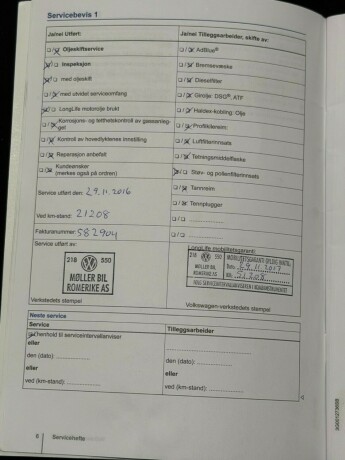 Servicebevis 1
Ja/nei Utført:
Oljeskiftservice
Inspeksjon
med oljeskift
med utvidet serviceomfang
LongLife motorolje brukt
Korrosjons- og tetthetskontroll av gassanlegget
Kontroll av hovedlyktenes innstilling
Reparasjon anbefalt
Kundeønsker
(merkes også på ordren)
Service utført den: 29.11.2016
Ved km-stand: 21208
Fakturanummer: 582904
Service utført av:
218 550
MØLLER BIL
ROMERIKE AS
Verkstedets stempel
Ja/nei Tilleggsarbeider, skifte av:
AdBlue®
Bremsevæske
Dieselfilter
Girolje: DSG®, ATF
Haldex-kobling: Olje
Profilkilereim
Luftfilterinnsats
Tetningsmiddelflaske
Støv- og pollenfilterinnsats
Tannreim
Tennplugger
LongLife mobilitetsgaranti:
218 550
MØLLER BIL
ROMERIKE AS
Dato: 29.11.2017
Volkswagen-verkstedets stempel
Neste service
Service
I henhold til serviceintervallanviser
eller
den (dato):
eller
ved (km-stand):
Tilleggsarbeider
den (dato):
eller
ved (km-stand):
8 Servicehefte